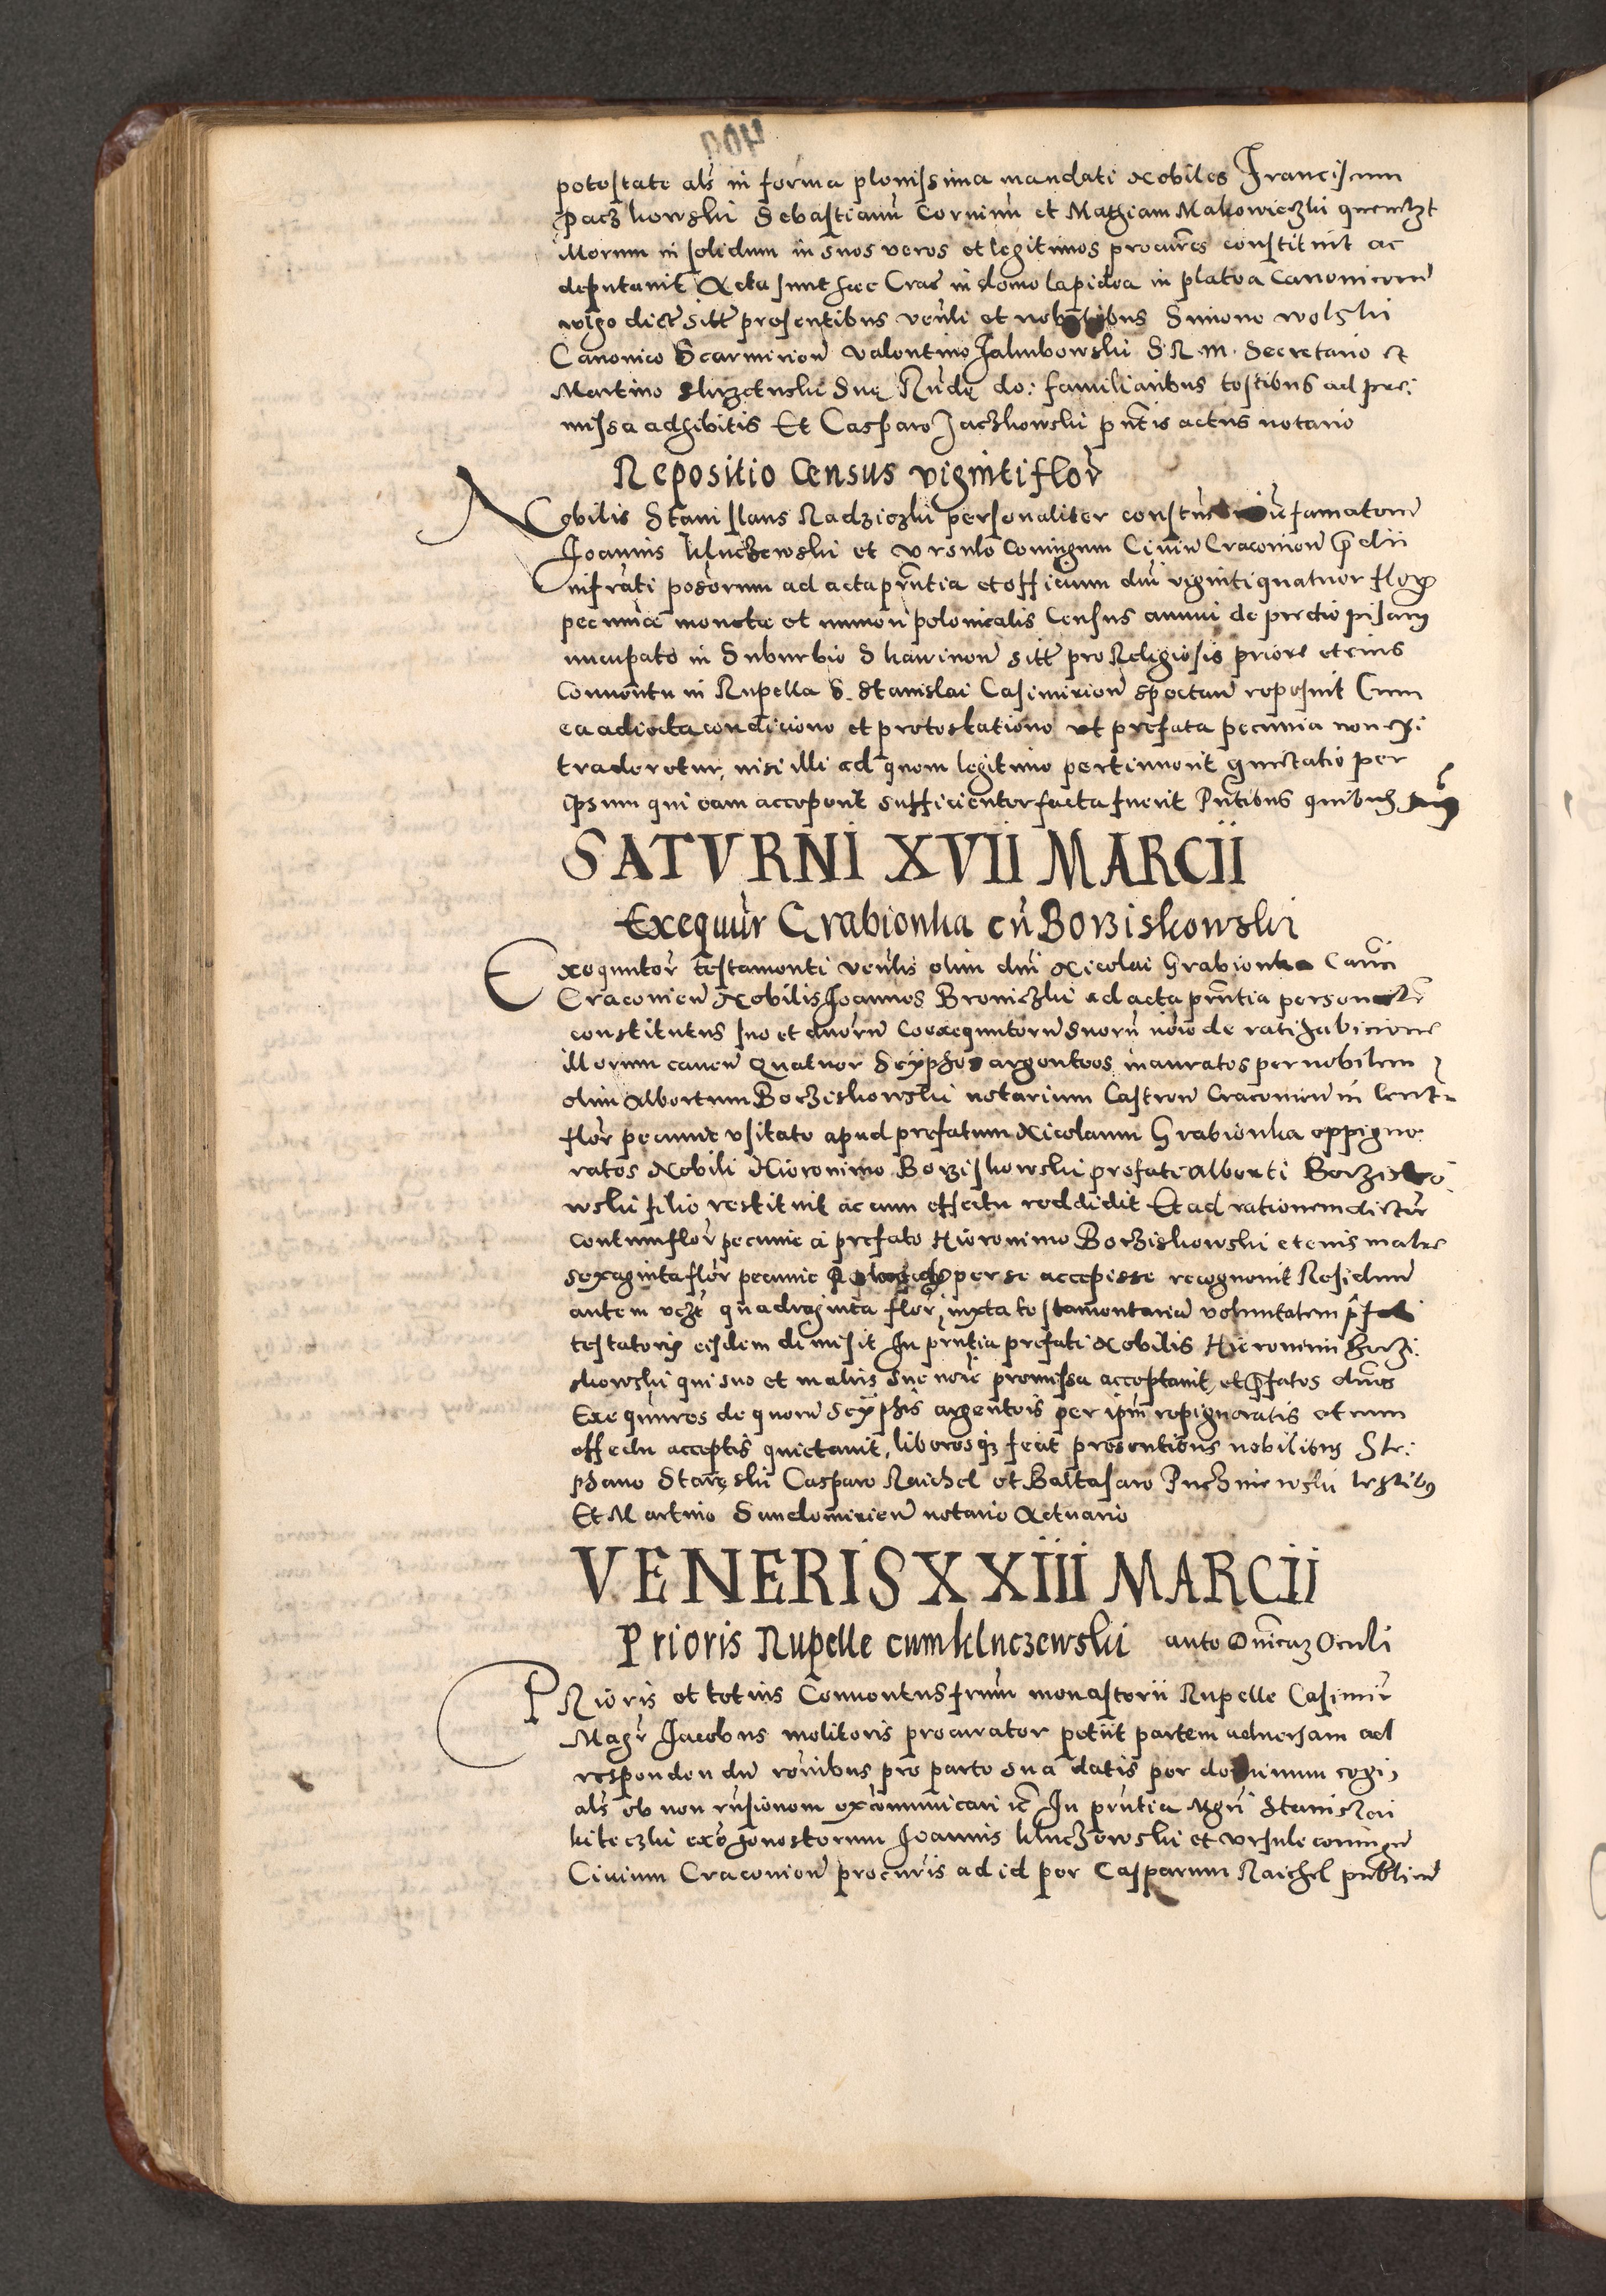 potestate als in forma plenissima mandati Nobiles Franciscum
Paczkowski Sebastianu Corninu et Mathiam Makowieczki quemlzt
illorum in solidum in suos veros et legitimos procures constituit ac
deputauit Acta sunt hec Crac in domo lapidea in platea Canonicorum
wlgo dict sitt presentibus venli et nobilibus Simone wolski
Canonico Scarmirien Valentino Jakubowski S. R. M. Secretario et
Martino dne Rude do: familiaribus testibus ad pre:
missa adhibitis Et Casparo Jaczkowski pntis actus notario
Repositio Census viginti flor
Nobilis Stanislaus Radzieczki personaliter constus famatorum
Joannis kluczewski et vrsule Coniugum Ciuiu Cracouien predii
infrati possorum ad acta pntia et officium dni viginti quatuor flor
pecunie monete et numeri polonicalis Census annui de predio
nucupato in Suburbio Skawinen sitt pro Religiosis priore et eius
Conuentu in Rupella S. Stanislai Casimirien spectan reposuit Cum
ea adiecta condicione et protestatione ut prefata pecunia non cui
traderetur, nisi illi ad quem legitime pertinuerit quietatio per
ipsum qui eam acceperit sufficienter facta fuerit Pntibus quibus
SATVRNI XVII MARCII
Exequur Grabionka cu Borziskowski
Exequutor testamenti venlis olim dni Nicolai Grabionka Canci
Cracouien Nobilis Joannes Broniczki ad acta pntia personalr
constitutus suo et aliorum Coexequutorum suoru noie de ratihabicione
illorum cauen Quatuor Scyphos argenteos inauratos per nobilem
olim Albertum Borziskowski notarium Castren Cracouien in Cent:
flor pecunie vsitate apud prefatum Nicolaum Grabionka oppigno:
ratos Nobili Hieronimo Borziskowski prefati alberti Borzisko:
wski filio restituit ac cum effectu reddidit Et ad rationem dictor
centum flor pecunie a prefato Hieronimo Borziskowski et eius matre
sexaginta flor pecunie per se accepisse recognouit Residuu
autem vczt quadraginta flor, iuxta testamentaria voluntatem pfati
testatoris eisdem dimisit In pntia prefati Nobilis Hieronimi Borzi:
skowski qui suo et matris sue noie premissa acceptauit, et pfatos dnos
Exequures de quatuor Scyphis argenteis per ipm repignoratis et cum
effectu acceptis quietauit, liberosqz fecit presentibus nobilibus Ste:
phano Casparo Raichel et Baltasaro Puchniewski testibus
Et Martino Sandomirien notario Actuario
VENERIS XXIIII MARCII
Prioris Rupelle cum kluczewski ante Dnicaz Oculi
PRioris et totius Conuentus frum monasterii Rupelle Casimir
Magr Jacobus molitoris procurator petiit partem aduersam ad
respondendu ronibus pro parte sua datis per dominum cogi,
als ob non rusionem excommunicari ic In pntia Mgri Stanislai
kiteczki honestorum Joannis kluczewski et vrsule coniugu
Ciuium Cracouien procuris ad id per Casparum Raichel publicu